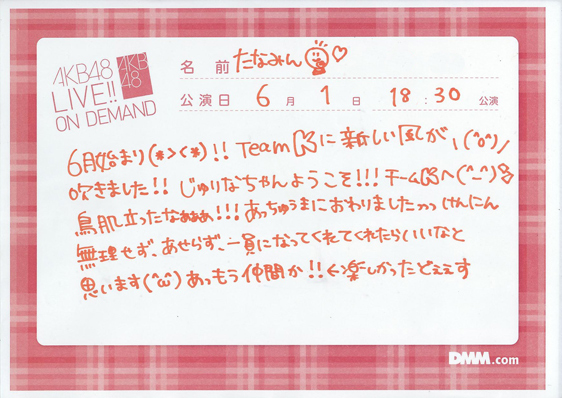 AKB48
LIVE!!
ON DEMAND
AKB
48
名 前 たなみん♡
公演日 6月 1日 18:30 公演
6月始まり(*>く*)!! TeamKに新しい風が\(^o^)/
吹きました!! じゅりなちゃんようこそ!!! チームKへ(^_^)
鳥肌立ったなぁぁぁ!!! あっちゅうまにおわりましたっっ
無理せず、あせらず、一員になってくれてくれたらいいなと
思います(^ω^) あっもう仲間か!!←楽しかったどぇぇす
DMM.com